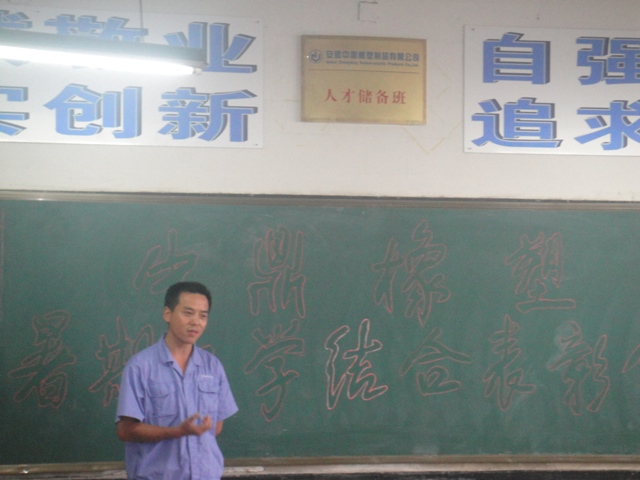 敬业
实创新
安徽中鼎橡塑制品有限公司
人才储备班
自强
追求
中鼎橡塑
暑期 学结合表彰